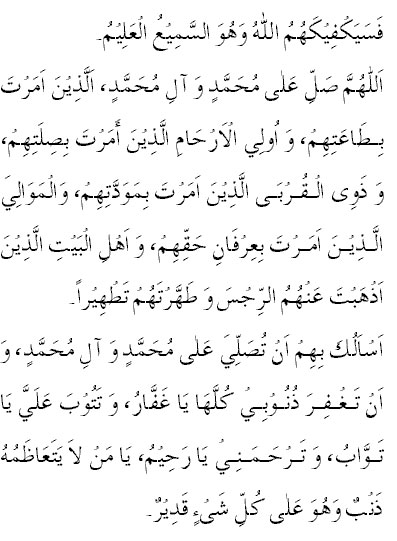 فَسَيَكْفِيْكَهُمُ اللّٰهُ وَهُوَ السَّمِيْعُ الْعَلِيْمُ۔
اَللّٰهُمَّ صَلِّ عَلٰى مُحَمَّدٍ وَ آلِ مُحَمَّدٍ، اَلَّذِيْنَ اَمَرْتَ
بِطَاعَتِهِمْ، وَ اُولِي الْاَرْحَامِ الَّذِيْنَ أَمَرْتَ بِصِلَتِهِمْ،
وَ ذَوِى الْقُرْبَى الَّذِيْنَ اَمَرْتَ بِمَوَدَّتِهِمْ، وَالْمَوَالِيَ
الَّذِيْنَ اَمَرْتَ بِعِرْفَانِ حَقِّهِمْ، وَ اَهْلِ الْبَيْتِ الَّذِيْنَ
اَذْهَبْتَ عَنْهُمُ الرِّجْسَ وَ طَهَّرْتَهُمْ تَطْهِيْراً۔
اَسْاَلُكَ بِهِمْ اَنْ تُصَلِّيَ عَلٰى مُحَمَّدٍ وَ آلِ مُحَمَّدٍ، وَ
اَنْ تَغْفِرَ ذُنُوْبِيْ كُلَّهَا يَا غَفَّارُ، وَ تَتُوْبَ عَلَيَّ يَا
تَوَّابُ، وَ تَرْحَمَنِيْ يَا رَحِيْمُ، يَا مَنْ لاَ يَتَعَاظَمُهُ
ذَنْبٌ وَهُوَ عَلٰى كُلِّ شَىْءٍ قَدِيْرٌ۔